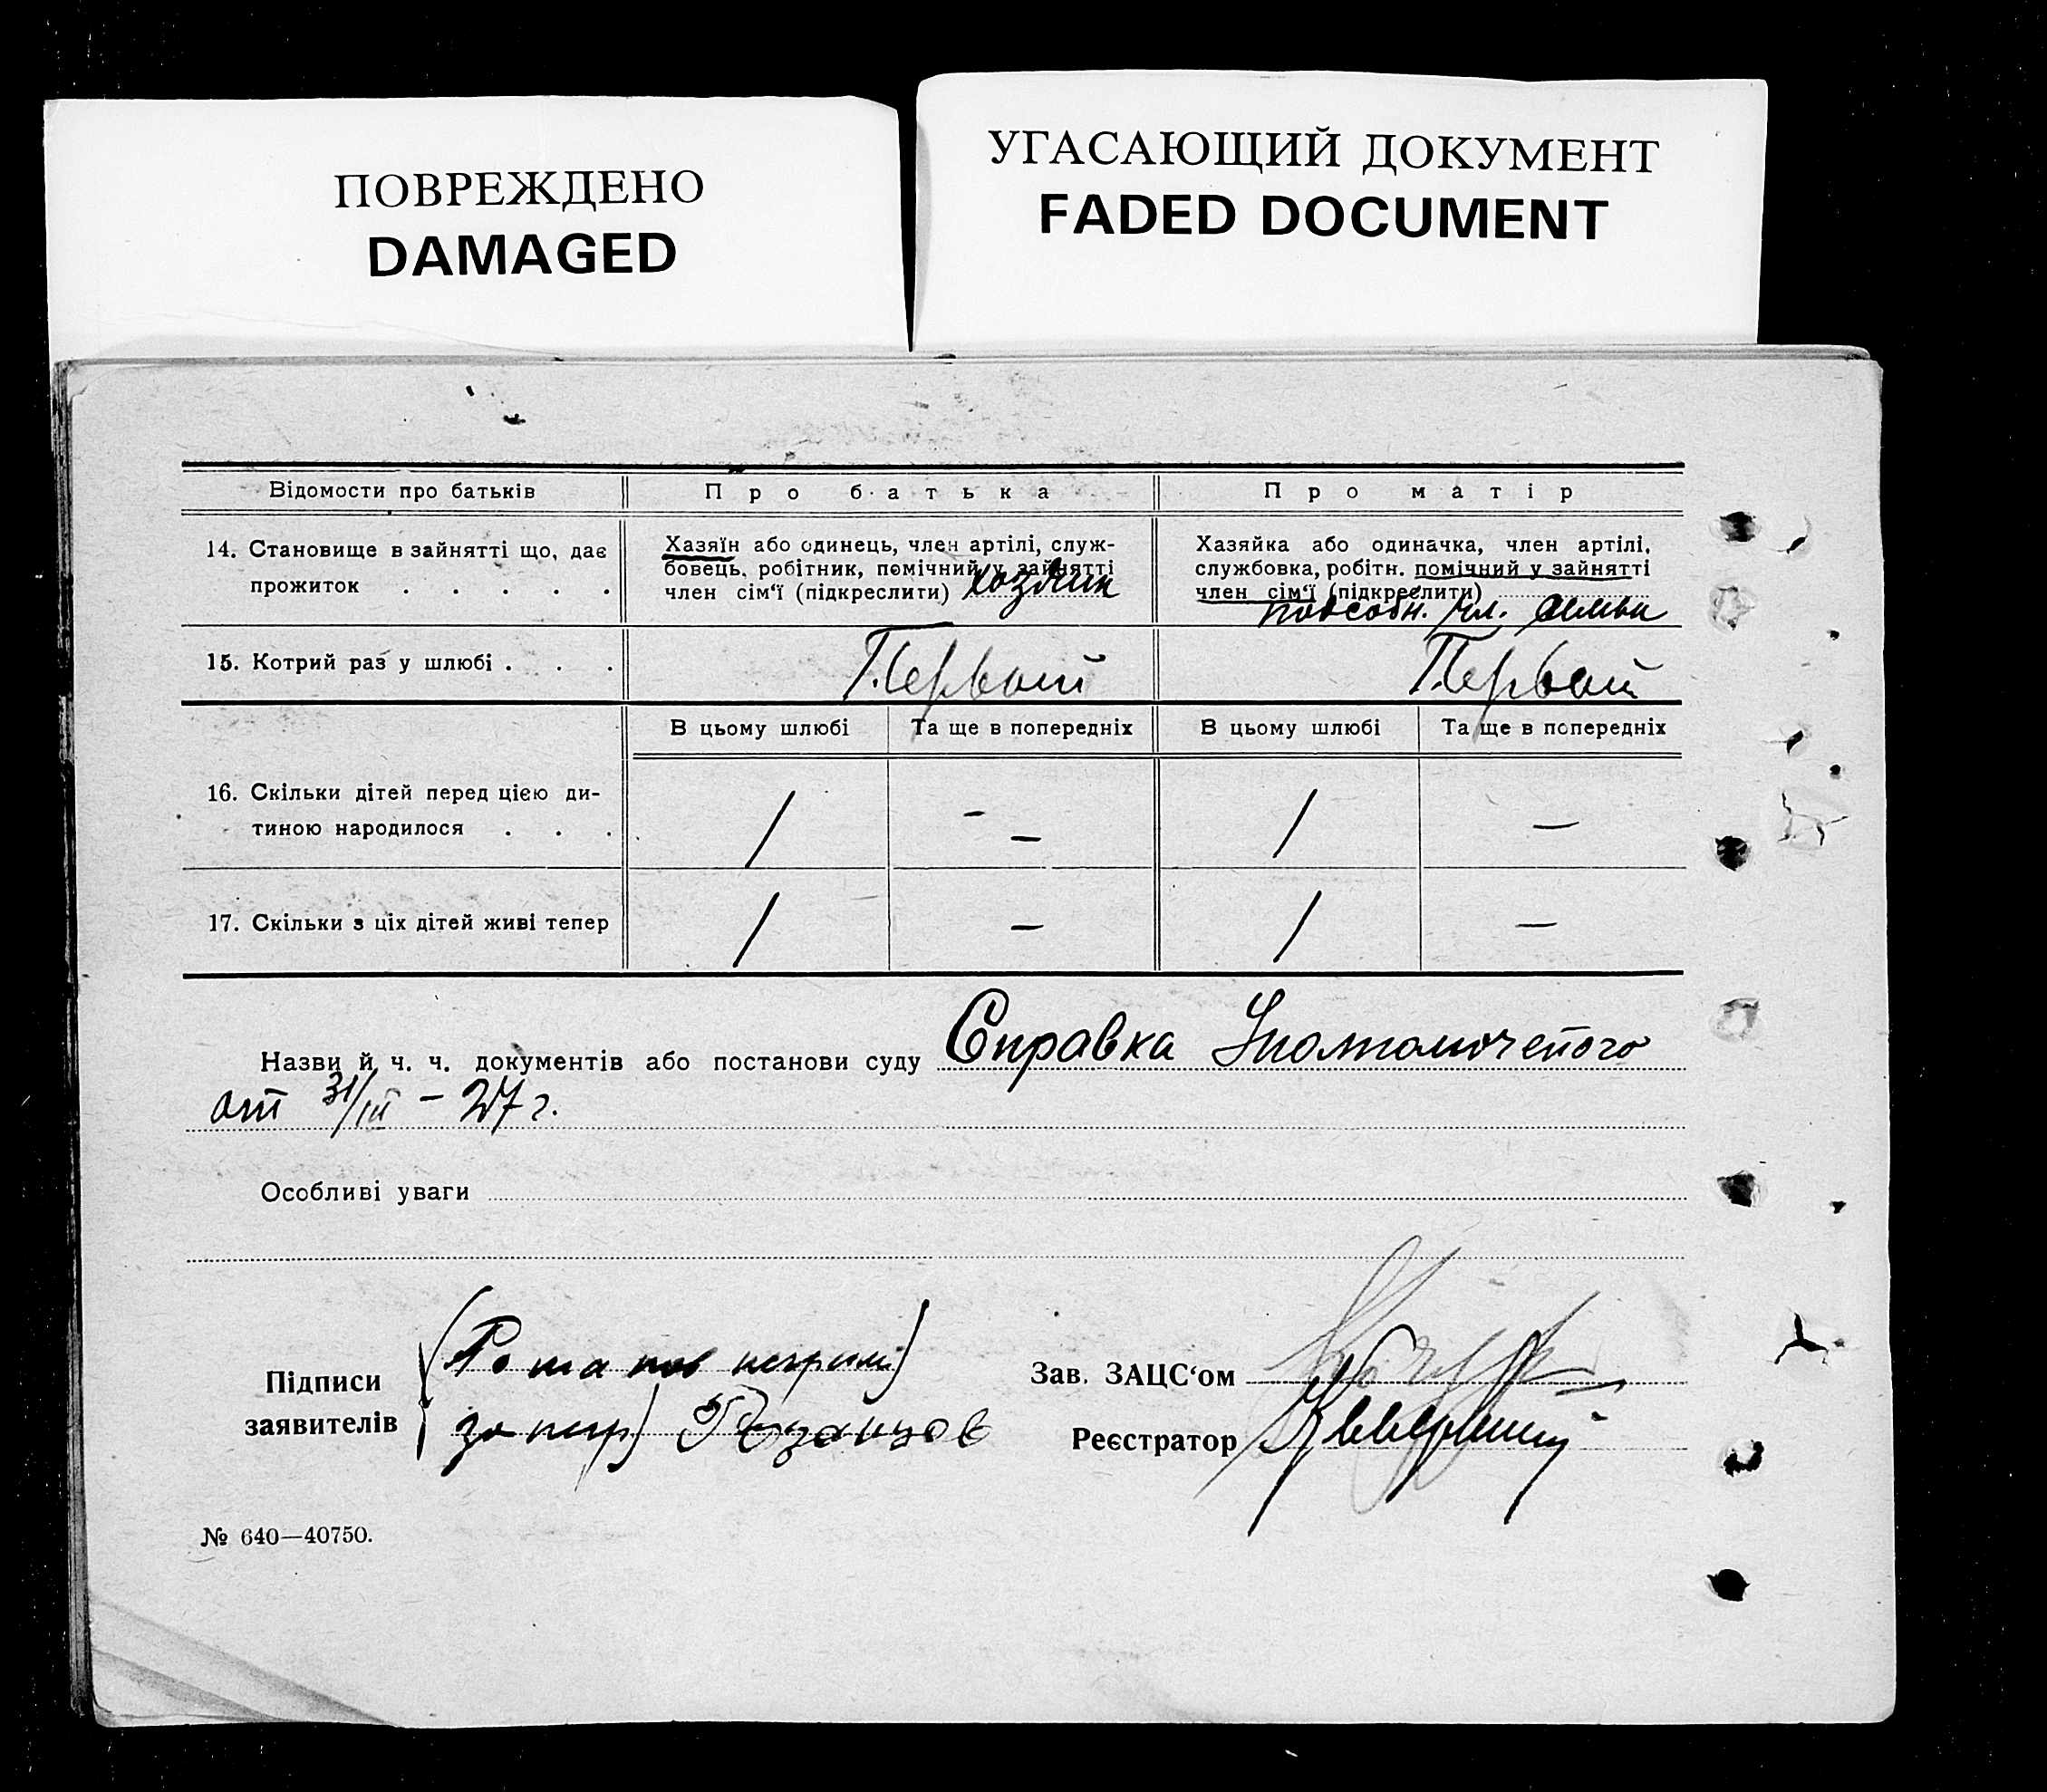 ПОВРЕЖДЕНО
DAMAGED
УГАСАЮЩИЙ ДОКУМЕНТ
FADED DOCUMENT
Відомости про батьків
Про батька
Про матір
14. Становище в зайнятті що, дає
прожиток . . . . .
Хазяїн або одинець, член артілі, служ-
бовець, робітник, помічний у зайнятті
член сім'ї (підкреслити) хозяин
Хазяйка або одиначка, член артілі,
службовка, робітн. помічний у зайнятті
член сім'ї (підкреслити)
подсобн. чл. семьи
15. Котрий раз у шлюбі . . .
Первый
Первый
В цьому шлюбі
Та ще в попередніх
В цьому шлюбі
Та ще в попередніх
16. Скільки дітей перед цією ди-
тиною народилося . . .
/
- —
/
—
17. Скільки з ціх дітей живі тепер
/
—
/
—
Назви й ч. ч. документів або постанови суду Справка Уполномоченого
от 31/III – 27 г.
Особливі уваги
Підписи
заявителів
(Потапов неграм)
за негр)
Зав. ЗАЦС'ом
Реєстратор
№ 640—40750.